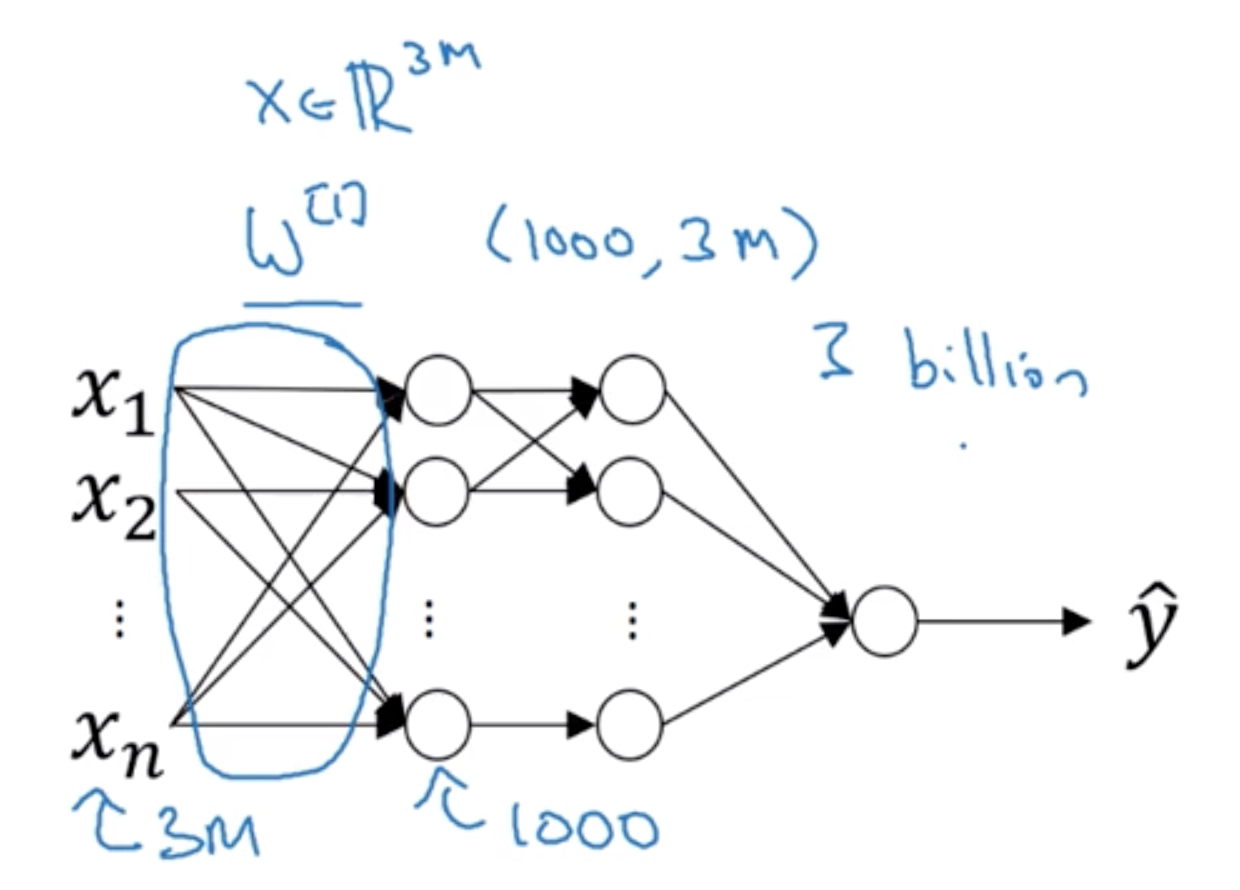 x ∈ ℝ³ᴹ
W^[1] (1000, 3M)
3 billion
x₁
x₂
⋮ ⋮ ⋮
ŷ
xₙ
3M
1000